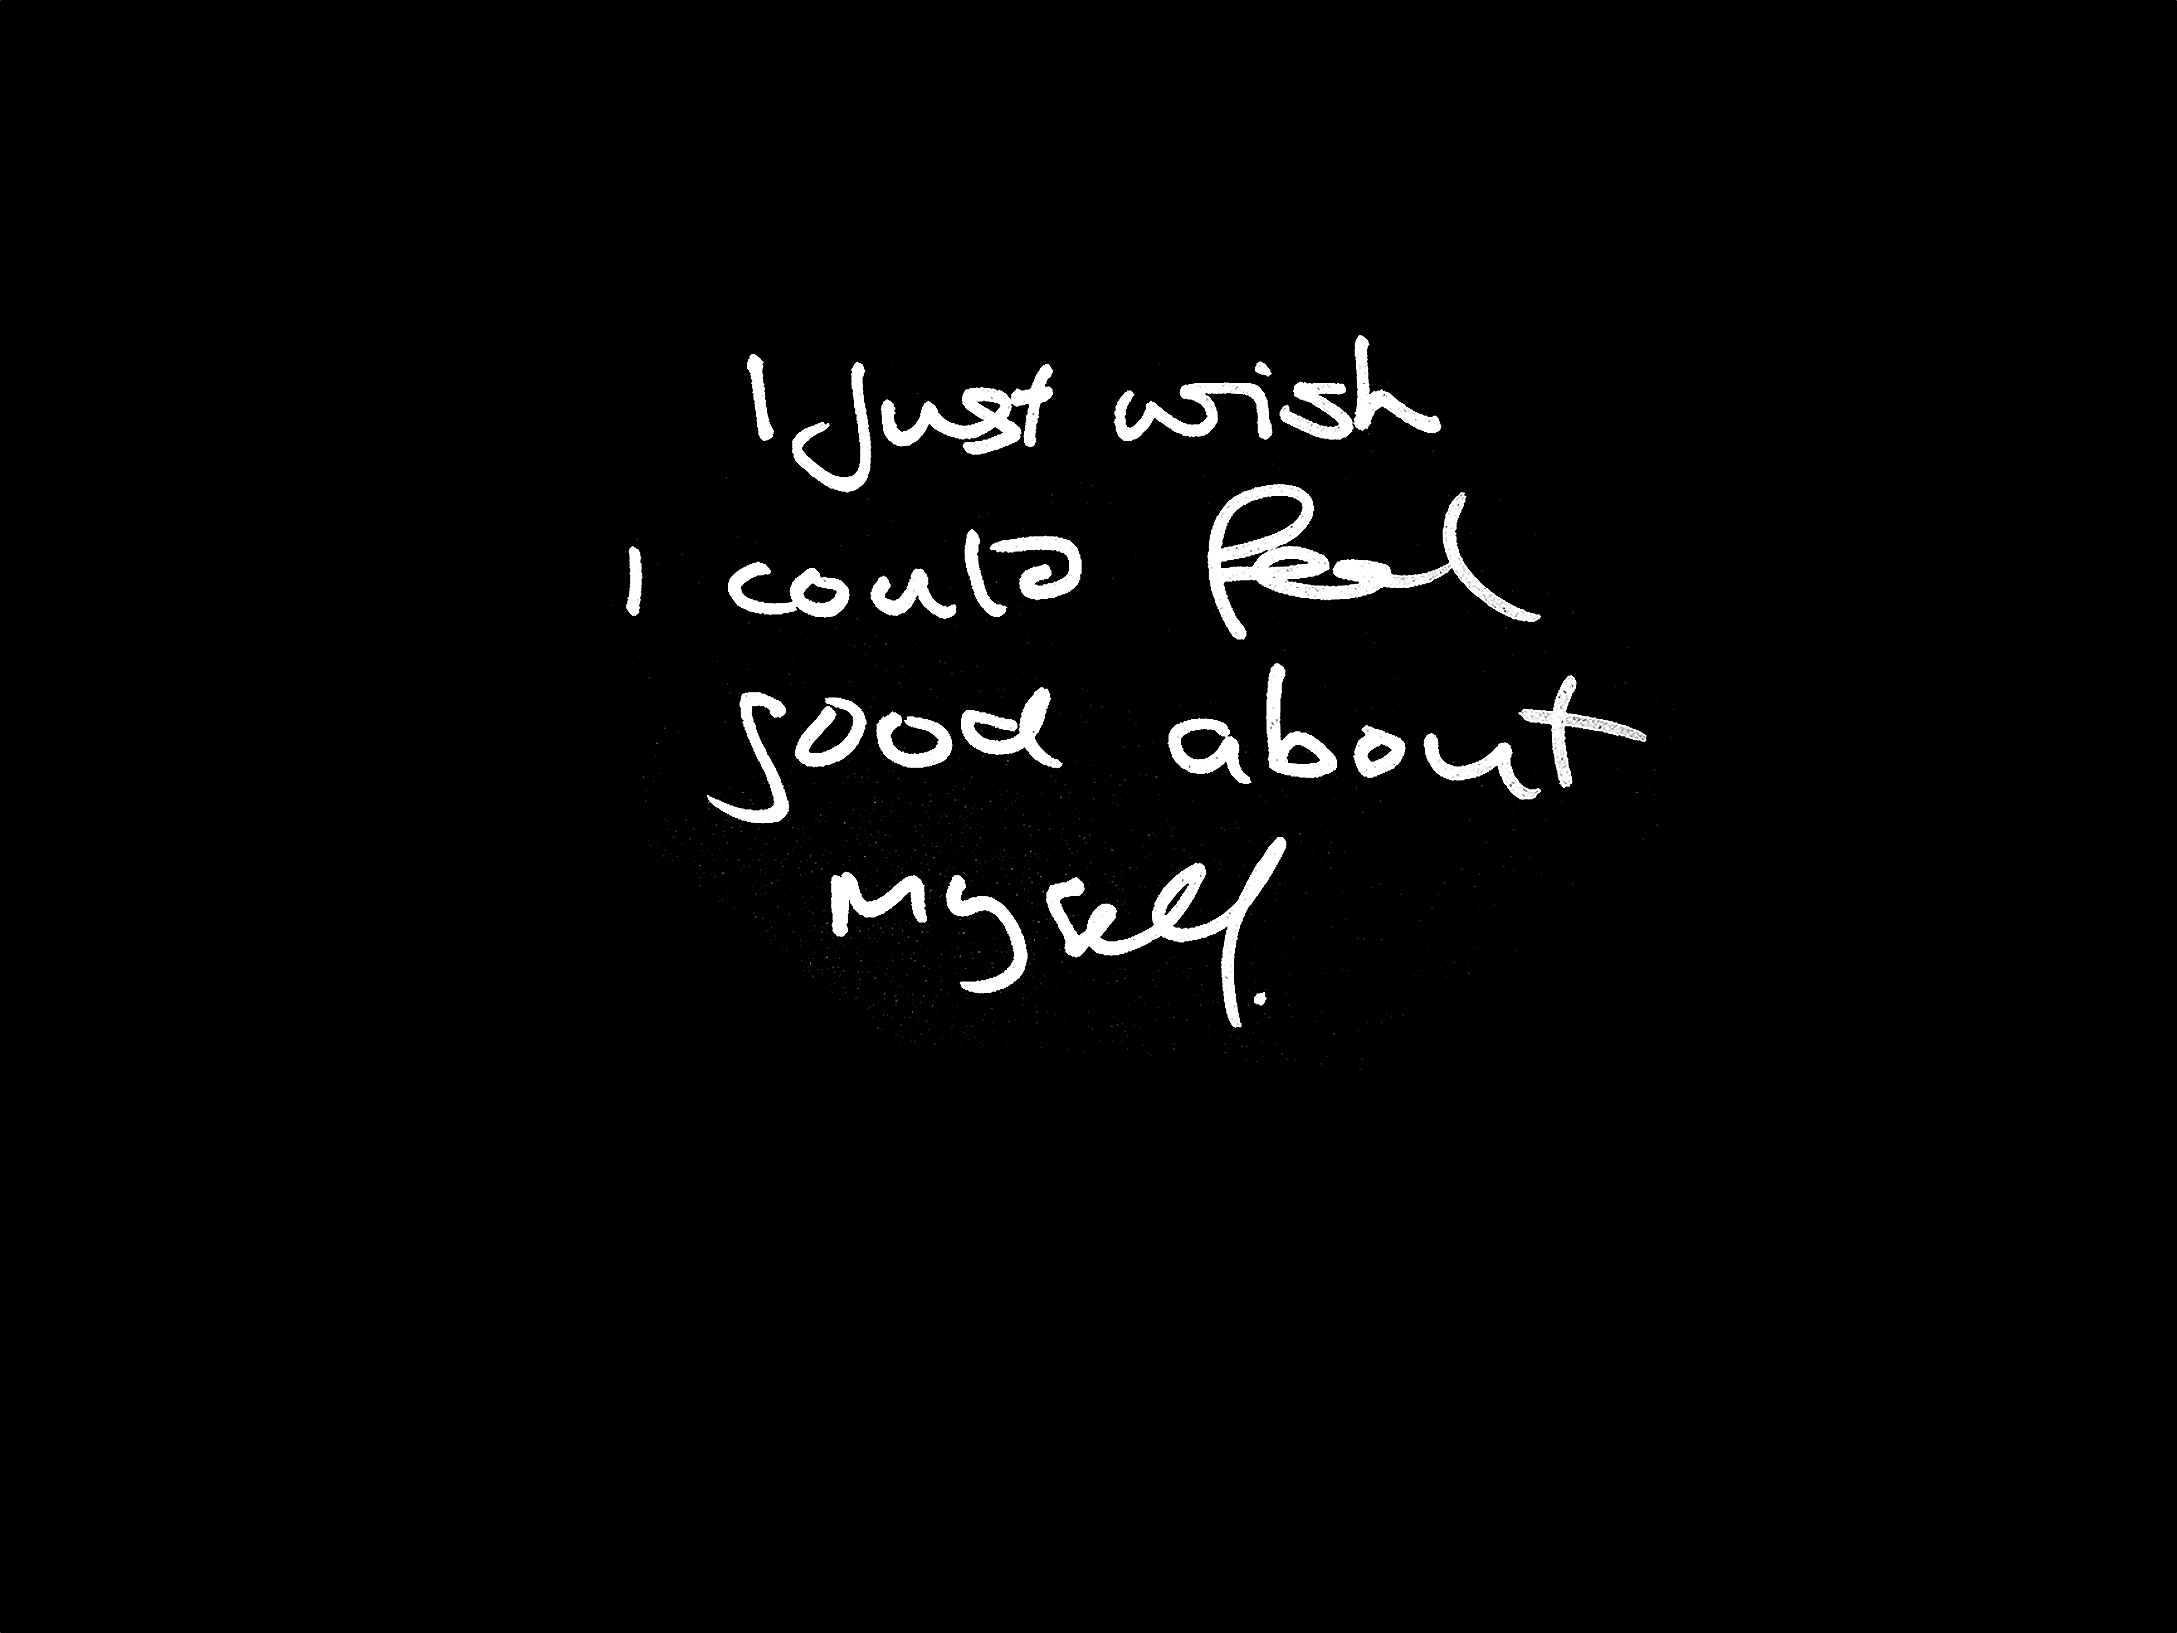 I Just wish
I could feel
good about
myself.